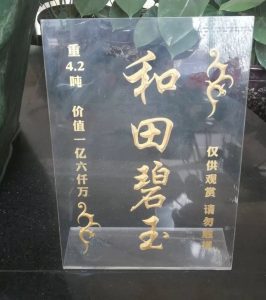 重4.2吨 价值一亿六仟万
和田碧玉
仅供观赏 请勿